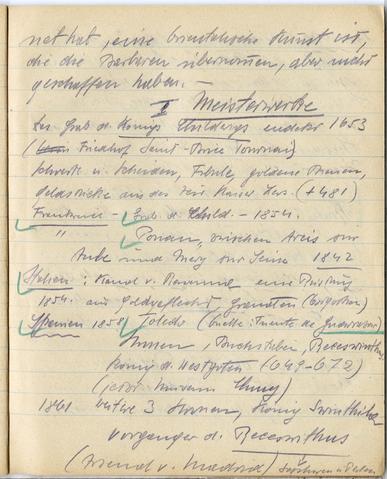 net hat, eine orientalische Kunst ist,
die die Barbaren übernommen, aber nicht
geschaffen haben. –
I Meisterwerke
Das Grab d. Königs Childerigs entdeckt 1653
(Friedhof Saint-Brice Tournai)
Schwerter u. Scheiden, Fibule, goldene Bienen,
Goldstücke aus der Zeit Kaiser (+481)
Frankreich – Grab d. Child. – 1854.
" Pouan, zwischen Arcis sur
Aube und Mery sur Seine 1842
Italien: Kanal v. Ravenna eine Rüstung
1854. aus Goldgeflecht, Granaten
Spanien 1858 Toledo (Quelle: Fuente de Guarrazar)
Kronen, Buchstaben, Receswinthus
König d. Westgoten (649-672)
(jetzt Museum Cluny)
1861 weitere 3 Kronen, König Swinthila
Vorgänger d. Receswinthus
(Arsenal v. Madrid)